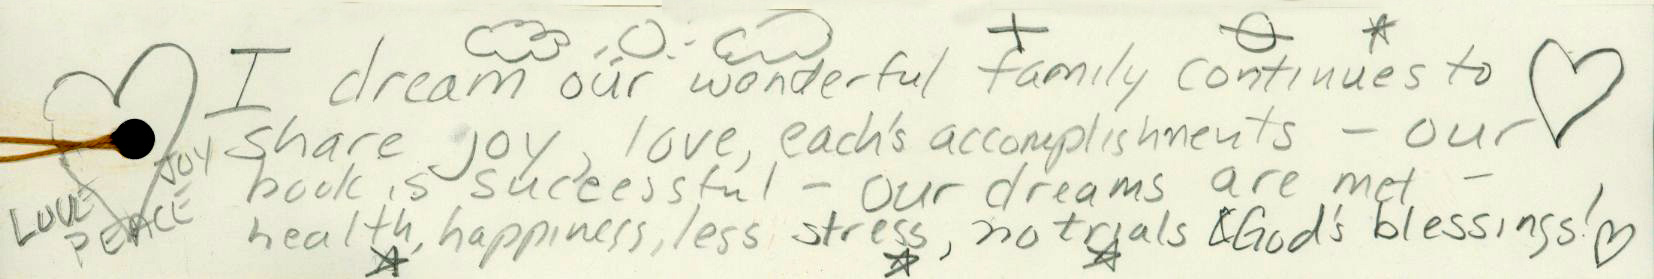 I dream our wonderful family continues to
share joy, love, each's accomplishments - our
book is successful - our dreams are met -
health, happiness, less stress, no trials & God's blessings!
LOVE
JOY
PEACE